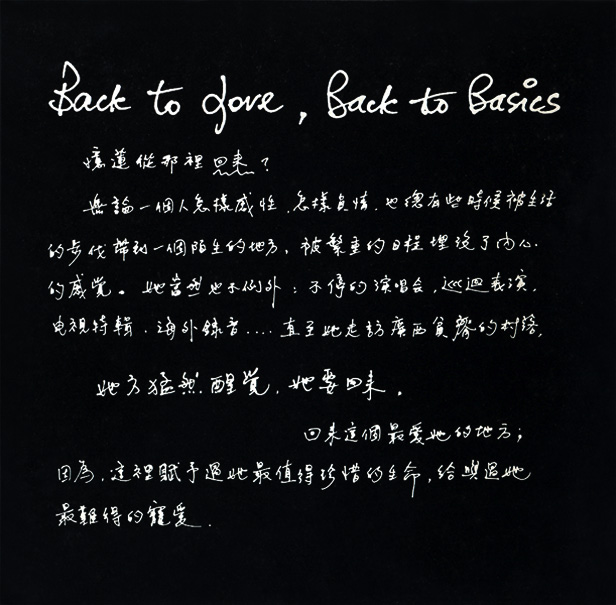 Back to Love, Back to Basics
憶蓮從那裡回来？
無論一個人怎樣感性，怎樣負情，也總有些時候被生活
的步伐帶到一個陌生的地方，被繁重的日程埋沒了內心
的感覚。她當然也不例外：不停的演唱会，巡迴表演，
电視特輯，海外錄音....直至她走訪廣西貧瘠的村落，
她方猛然醒覚，她要回来。
回来這個最愛她的地方；
因為，這裡賦予過她最值得珍惜的生命，給與過她
最難得的寵愛．